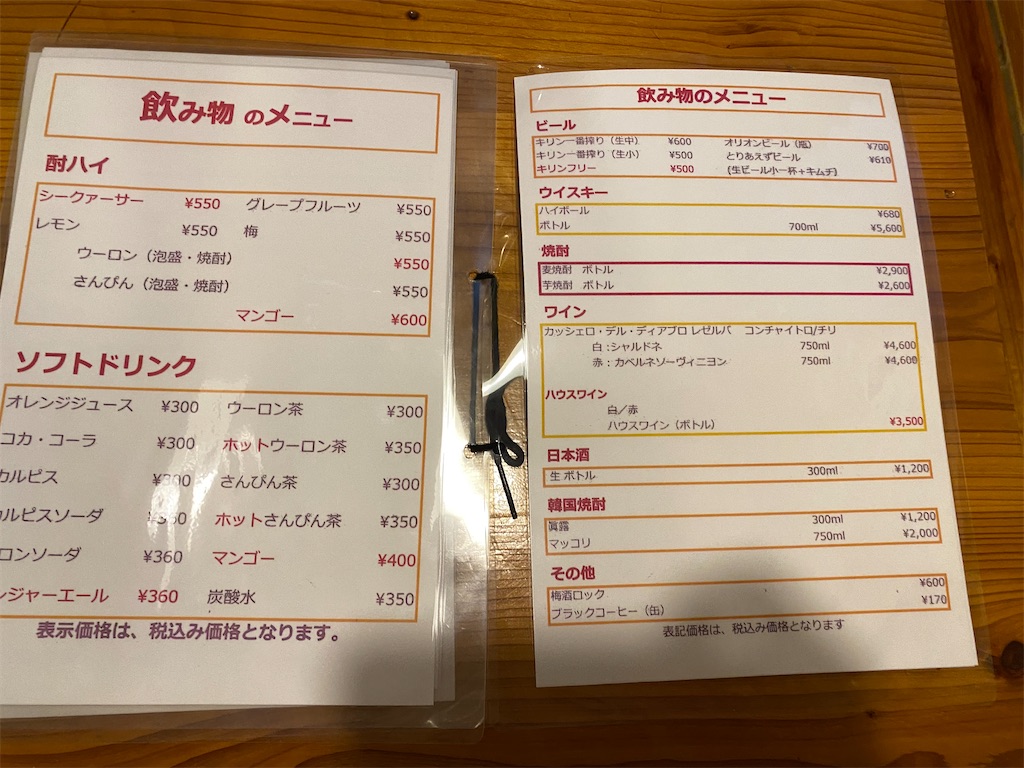 飲み物 のメニュー
酎ハイ
シークァーサー ¥550 グレープフルーツ ¥550
レモン ¥550 梅 ¥550
ウーロン（泡盛・焼酎） ¥550
さんぴん（泡盛・焼酎） ¥550
マンゴー ¥600
ソフトドリンク
オレンジジュース ¥300 ウーロン茶 ¥300
コカ・コーラ ¥300 ホットウーロン茶 ¥350
カルピス ¥300 さんぴん茶 ¥300
カルピスソーダ ホットさんぴん茶 ¥350
ロンソーダ ¥360 マンゴー ¥400
ンジャーエール ¥360 炭酸水 ¥350
表示価格は、税込み価格となります。
飲み物のメニュー
ビール
キリン一番搾り（生中） ¥600 オリオンビール（瓶） ¥700
キリン一番搾り（生小） ¥500 とりあえずビール ¥610
キリンフリー ¥500 (生ビール小一杯＋キムチ)
ウイスキー
ハイボール ¥680
ボトル 700ml ¥5,600
焼酎
麦焼酎 ボトル ¥2,900
芋焼酎 ボトル ¥2,600
ワイン
カッシェロ・デル・ディアブロ レゼルバ コンチャイトロ/チリ
白：シャルドネ 750ml ¥4,600
赤：カベルネソーヴィニヨン 750ml ¥4,600
ハウスワイン
白／赤
ハウスワイン（ボトル） ¥3,500
日本酒
生 ボトル 300ml ¥1,200
韓国焼酎
眞露 300ml ¥1,200
マッコリ 750ml ¥2,000
その他
梅酒ロック ¥600
ブラックコーヒー（缶） ¥170
表記価格は、税込み価格となります